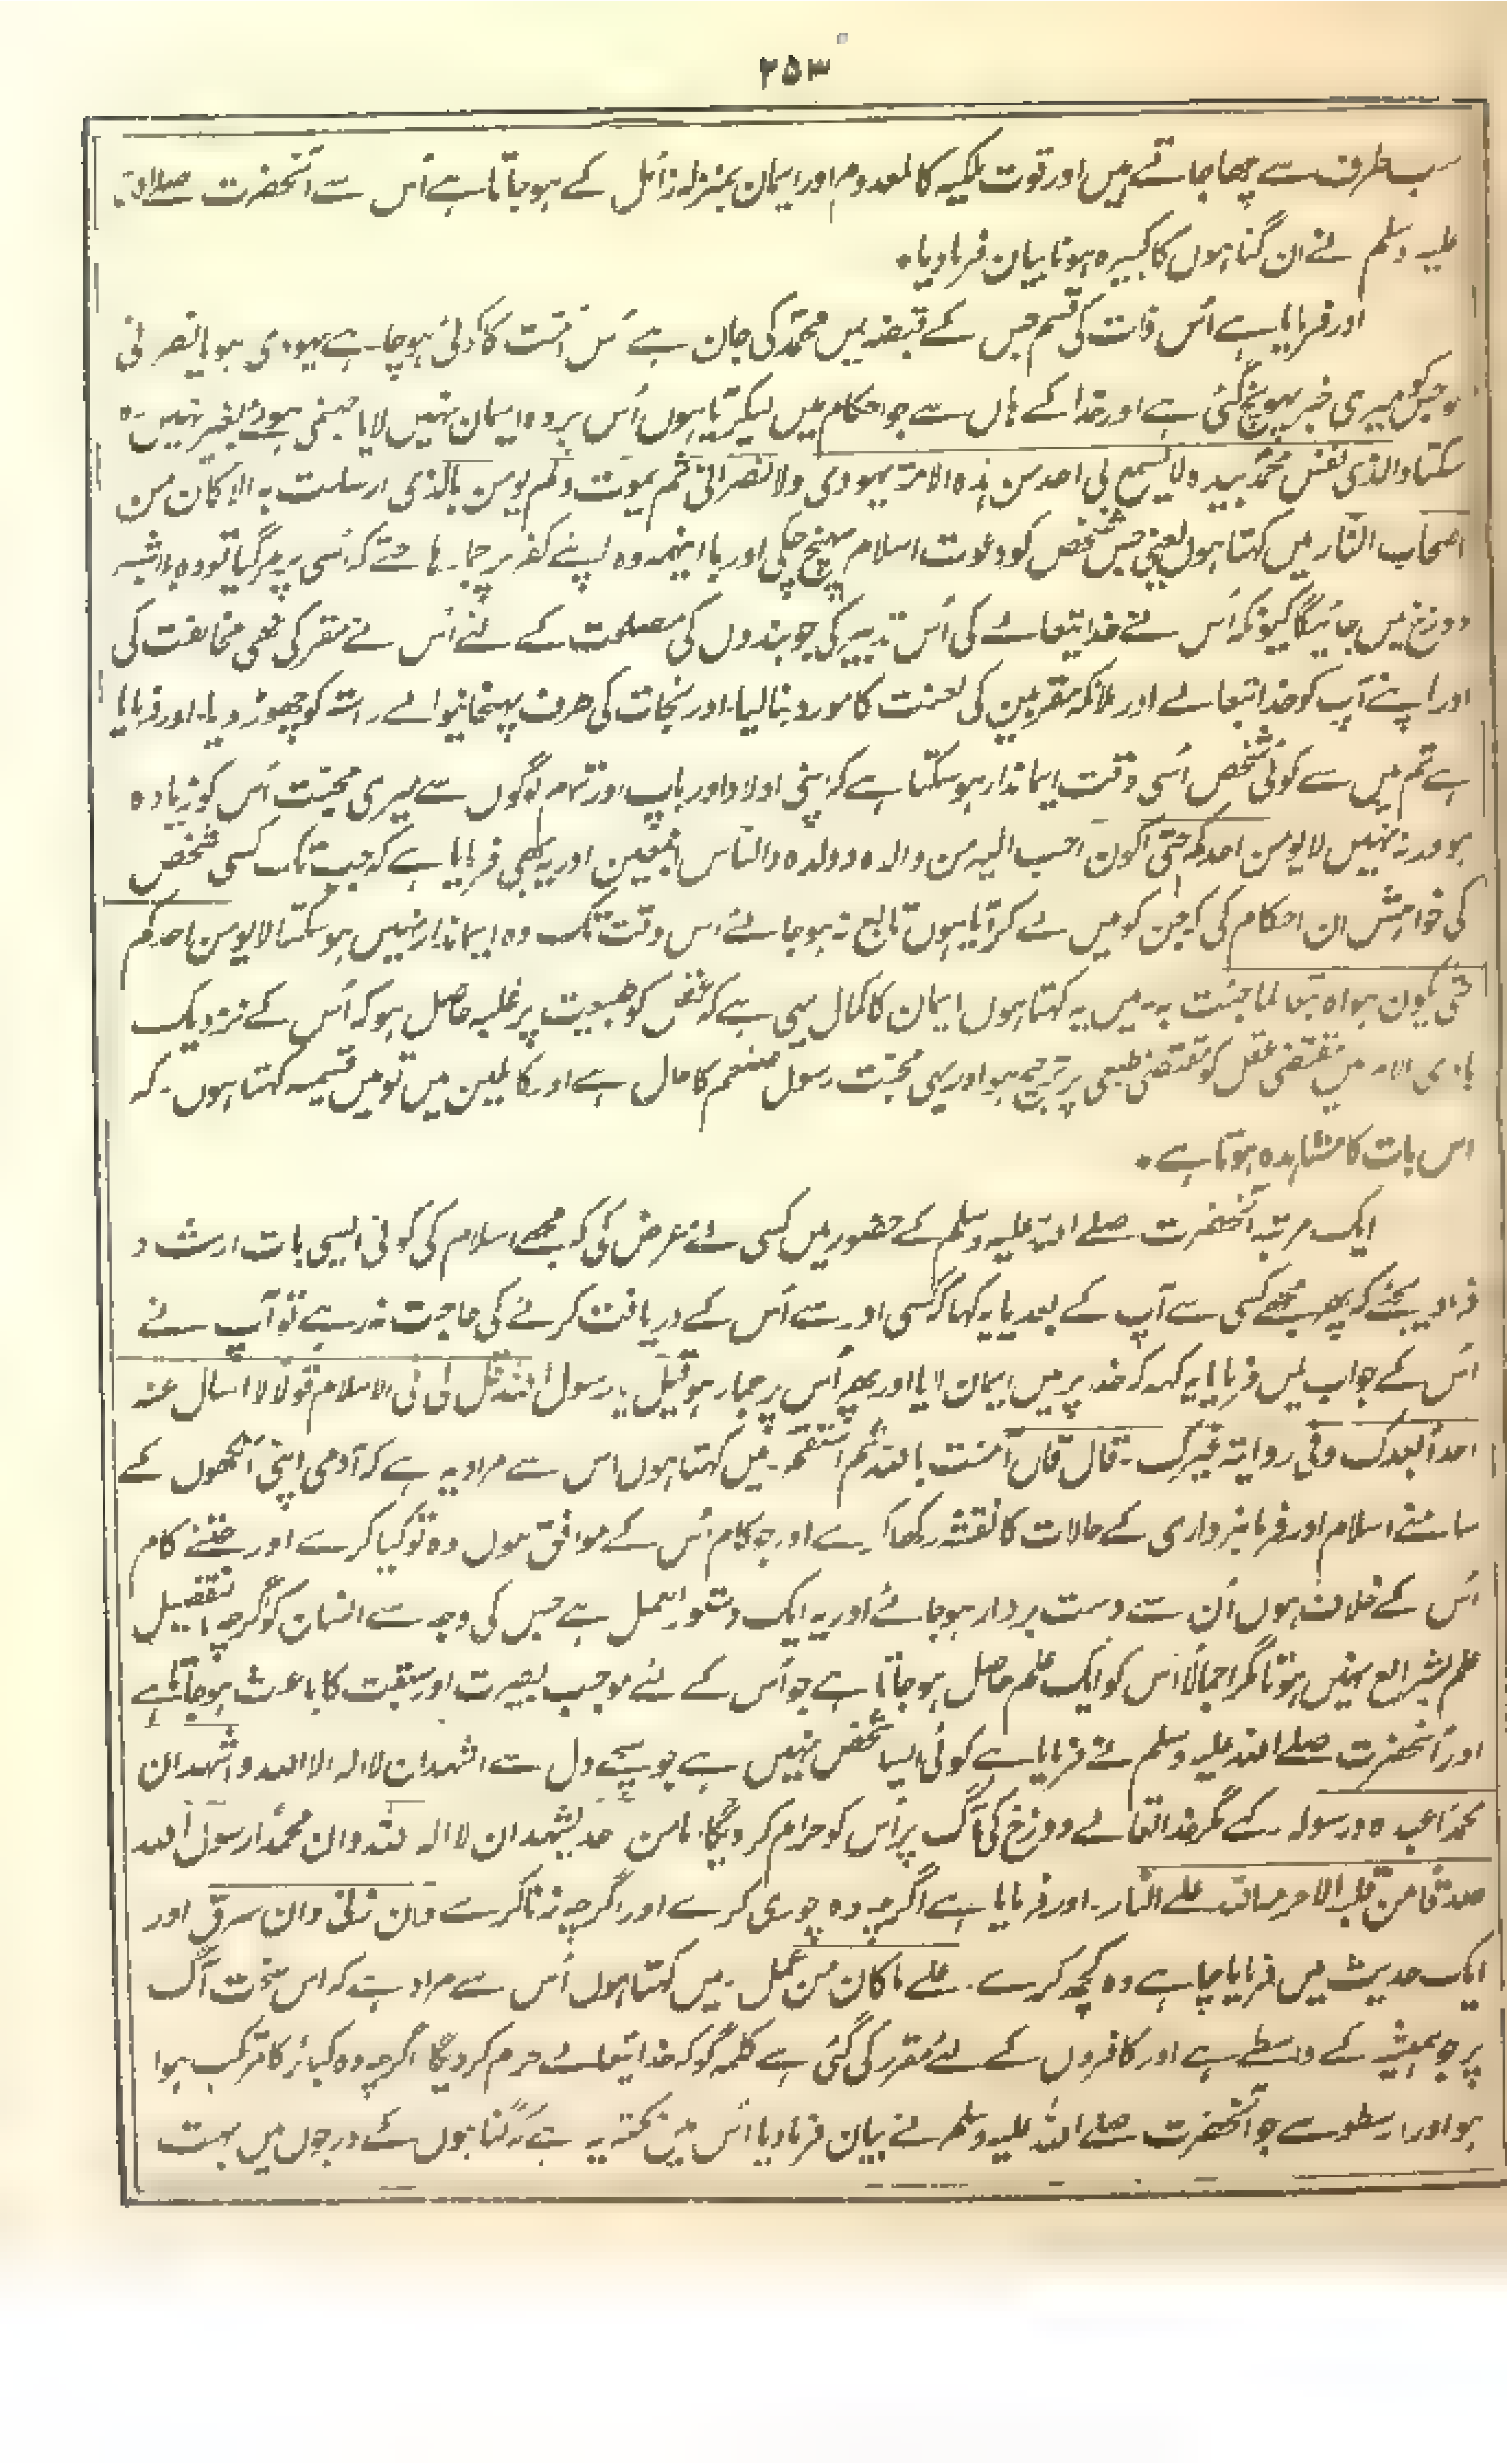 ۲۵۳
سب طرف سے چھا جاتے ہیں اور قوت ملکیہ کالمعدوم اور ایمان بمنزلہ زائل کے ہو جاتا ہے اُس سے آنحضرت صلے اللہ
علیہ وسلم نے ان گناہوں کا کبیرہ ہونا بیان فرما دیا۔
اور فرمایا ہے اُس ذات کی قسم جس کے قبضہ میں محمدؐ کی جان ہے اس امت کا کوئی ہو چاہے یہودی ہو یا نصرانی
جسکو میری خبر پہونچ گئی ہے اور خدا کے ہاں سے جو احکام میں لیکر آیا ہوں اُس پر وہ ایمان نہیں لایا جہنمی ہوئے بغیر نہیں رہ
سکتا والذی نفس محمدؐ بیدہ لا یسمع بی احد من ہذہ الامۃ یہودی ولا نصرانی ثم یموت ولم یومن بالذی ارسلت بہ الا کان من
اصحاب النار میں کہتا ہوں یعنی جس شخص کو دعوت اسلام پہنچ چکی اور با اینہمہ وہ اپنے کفر پر جما رہا حتے کہ اُسی پر مر گیا تو وہ بلاشبہ
دوزخ میں جائیگا کیونکہ اُس نے خدا تیعالے کی اُس تدبیر کی جو بندوں کی مصلحت کے لئے اُس نے مقرر کی تھی مخالفت کی
اور اپنے آپ کو خدا تیعالے اور ملائکہ مقربین کی لعنت کا مورد بنا لیا۔ اور نجات کی طرف پہنچانیوالے راستہ کو چھوڑ دیا۔ اور فرمایا
ہے تم میں سے کوئی شخص اُسی وقت ایماندار ہو سکتا ہے کہ اپنی اولاد اور باپ اور تمام لوگوں سے میری محبت اُس کو زیادہ
ہو ورنہ نہیں لا یومن احدکم حتی اکون احب الیہ من والدہ وولدہ والناس اجمعین اور یہ بھی فرمایا ہے کہ جب تک کسی شخص
کی خواہش ان احکام کی کہ جن کو میں لے کر آیا ہوں تابع نہ ہو جائے اس وقت تک وہ ایماندار نہیں ہو سکتا لا یومن احدکم
حتی یکون ہواہ تبعا لما جئت بہ میں یہ کہتا ہوں ایمان کا کمال یہی ہے کہ عقل کو طبیعت پر غلبہ حاصل ہو کہ اُس کے نزدیک
بادی الامر میں مقتضی عقل کو مقتضی طبعی پر ترجیح ہو اور یہی محبت رسول صلعم کا حال ہے اور کاملین میں تو میں قسمیہ کہتا ہوں۔ کہ
اس بات کا مشاہدہ ہوتا ہے۔
ایک مرتبہ آنحضرت صلے اللہ علیہ وسلم کے حضور میں کسی نے عرض کی کہ مجھے اسلام کی کوئی ایسی بات ارشاد
فرما دیجئے کہ پھر مجھے کسی سے آپ کے بعد یا یہ کہا کہ کسی اور سے اُس کے دریافت کرنے کی حاجت نہ رہے تو آپ نے
اُس کے جواب میں فرمایا یہ کہہ کہ خدا پر میں ایمان لایا اور پھر اُس پر جما رہو قیل یا رسول اللہ قل لی فی الاسلام قولا لا اسال عنہ
احداً بعدک وفی روایۃ غیرک۔ قال قل آمنت باللہ ثم استقم۔ میں کہتا ہوں اس سے مراد یہ ہے کہ آدمی اپنی آنکھوں کے
سامنے اسلام اور فرمانبرداری کے حالات کا نقشہ رکھا کرے اور جو کام اُس کے موافق ہوں وہ تو کیا کرے اور جتنے کام
اُس کے خلاف ہوں اُن سے دست بردار ہو جائے اور یہ ایک دستور العمل ہے جس کی وجہ سے انسان کو اگرچہ تفصیل
علم بشرائع نہیں ہوتا مگر اجمالاً اُس کو ایک علم حاصل ہو جاتا ہے جو اُس کے لئے موجب بصیرت اور سبقت کا باعث ہو جاتا ہے
اور آنحضرت صلے اللہ علیہ وسلم نے فرمایا ہے کوئی ایسا شخص نہیں ہے جو سچے دل سے اشہد ان لا الہ الا اللہ و اشہد ان
محمداً عبدہ ورسولہ کہے مگر خدا تعالے دوزخ کی آگ پر اُس کو حرام کر دیگا۔ ما من احد یشہد ان لا الہ الا اللہ وان محمداً رسول اللہ
صدقا من قلبہ الا حرمہ اللہ علے النار۔ اور فرمایا ہے اگرچہ وہ چوری کرے اور اگرچہ زنا کرے وان زنی وان سرق اور
ایک حدیث میں فرمایا چاہے وہ کچھ کرے۔ علے ما کان من عمل۔ میں کہتا ہوں اُس سے مراد ہے کہ اس سخت آگ
پر جو ہمیشہ کے واسطے ہے اور کافروں کے لئے مقرر کی گئی ہے کلمہ گو کو خدا تیعالے حرام کر دیگا اگرچہ وہ کبائر کا مرتکب ہوا
ہو اور اس طور سے جو آنحضرت صلے اللہ علیہ وسلم نے بیان فرما دیا اُس میں نکتہ یہ ہے کہ گناہوں کے درجوں میں بہت